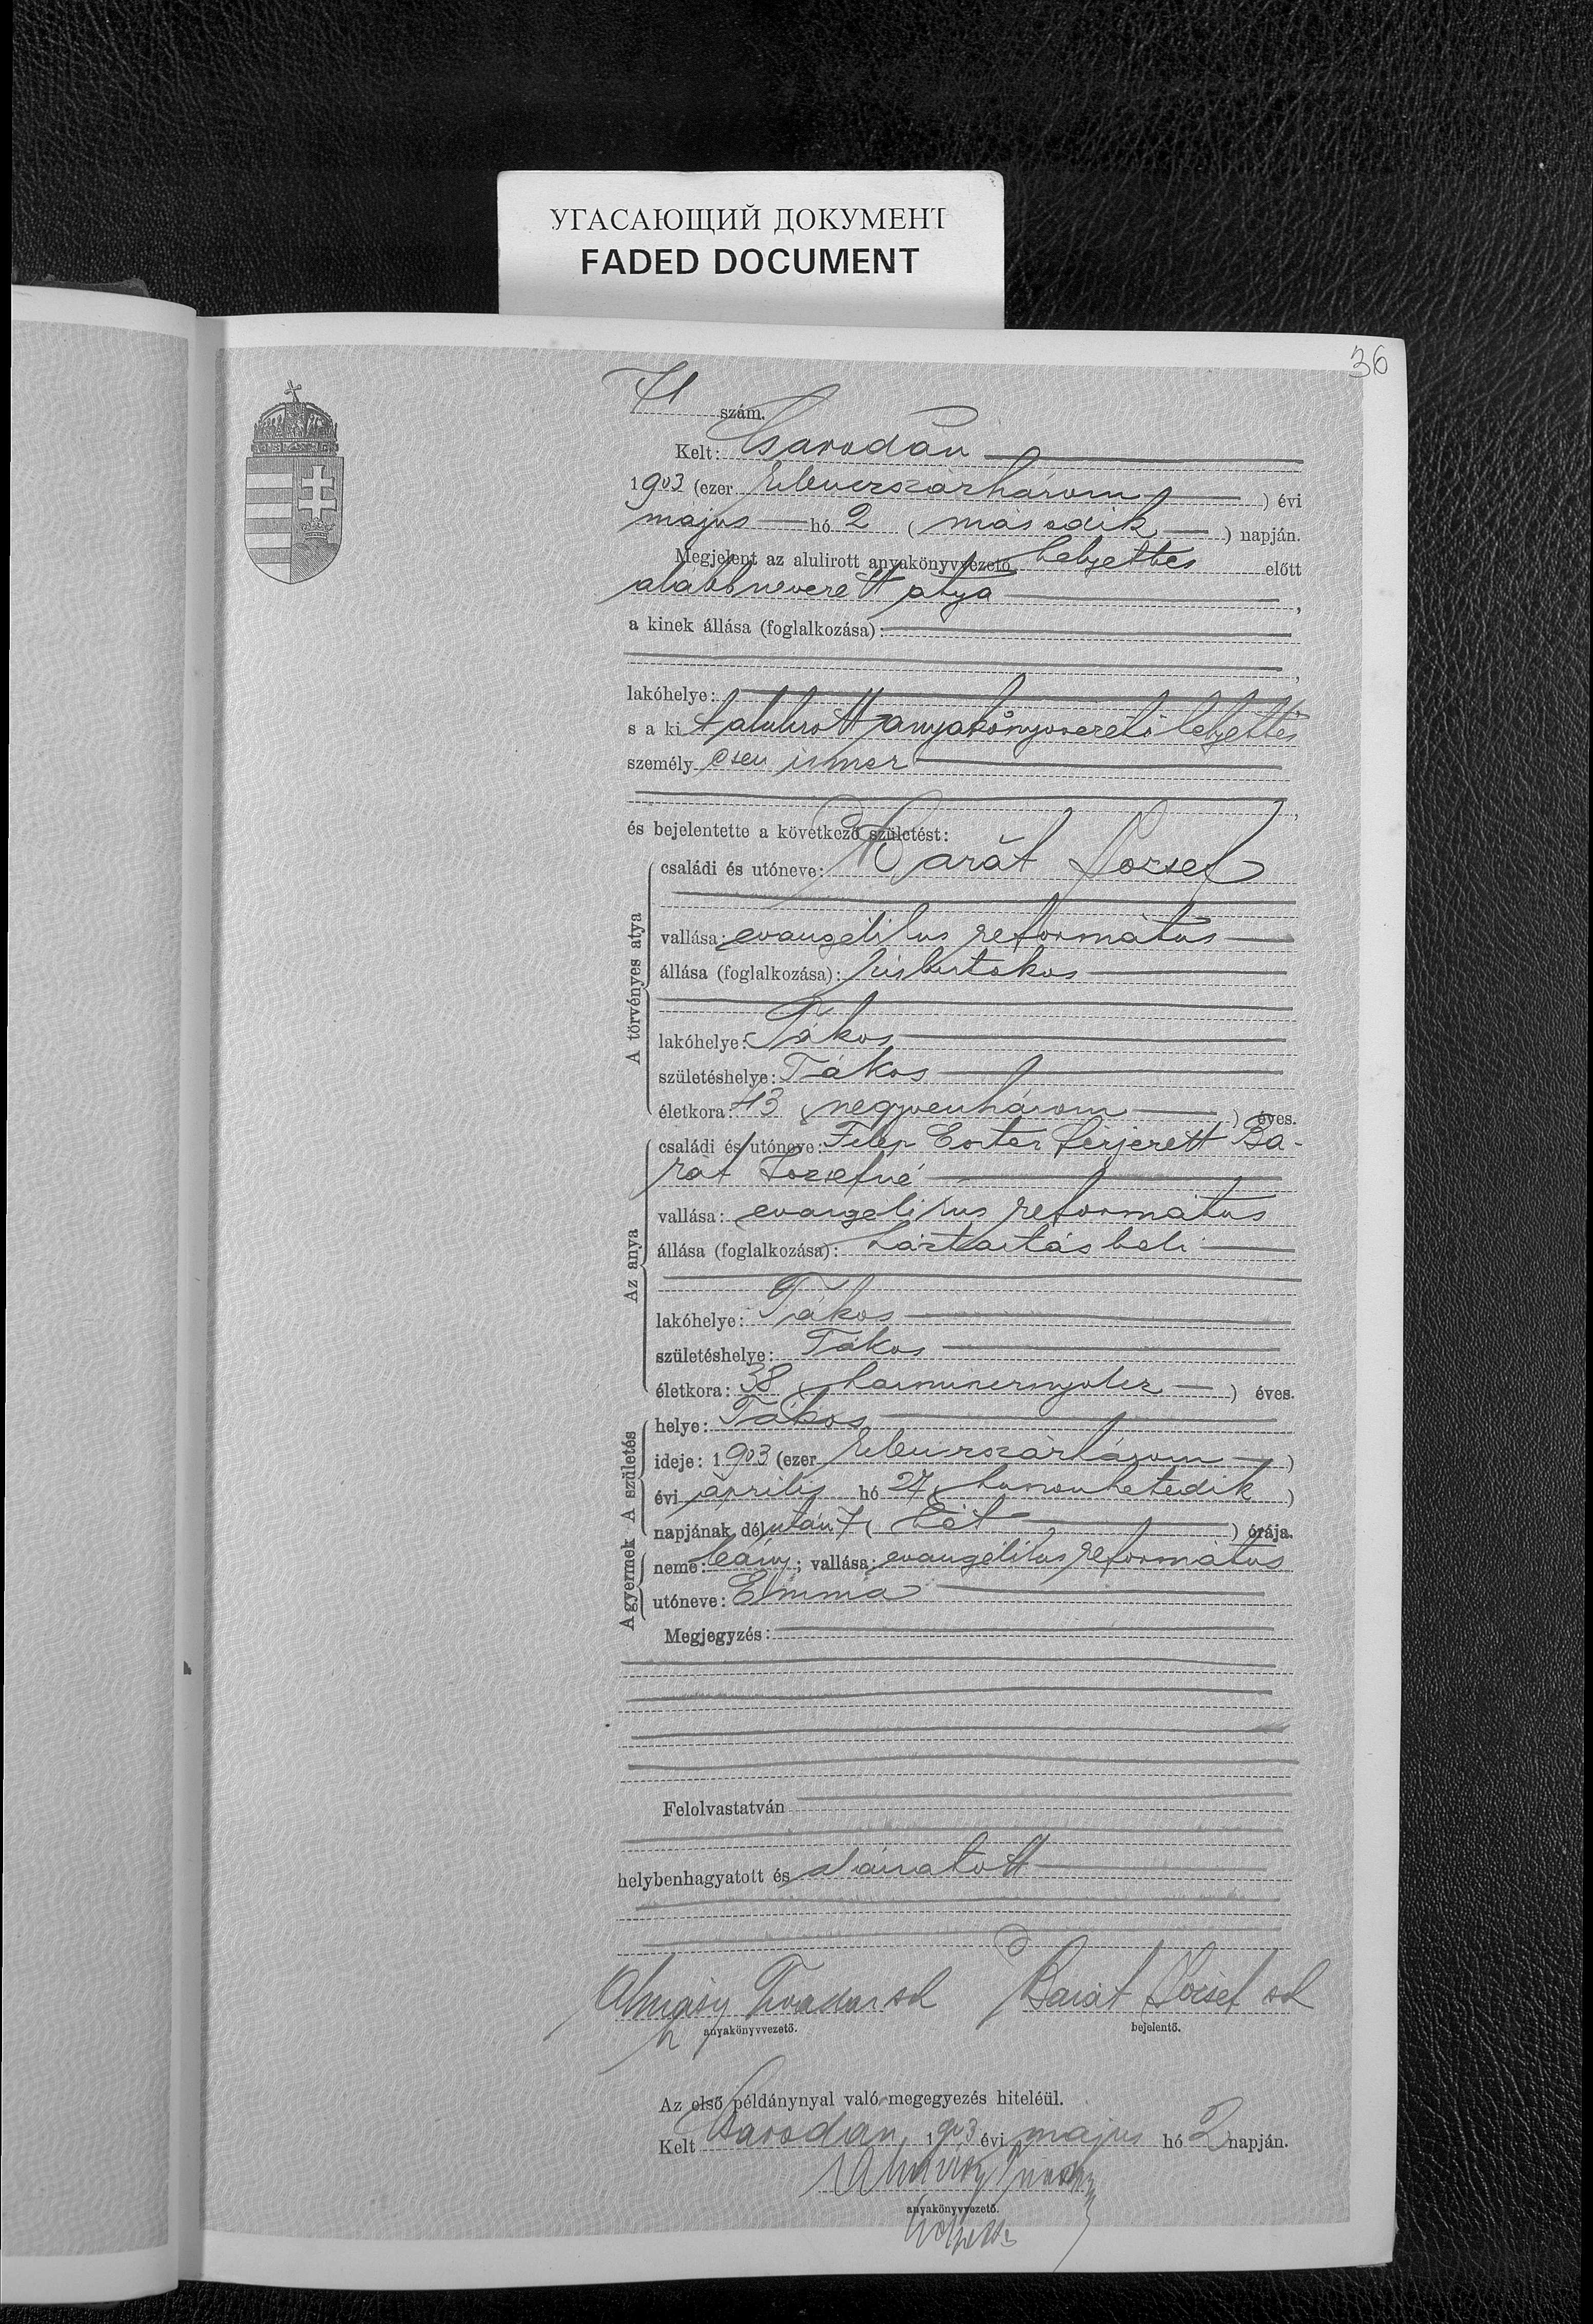 УГАСАЮЩИЙ ДОКУМЕНТ
FADED DOCUMENT
36
71 szám.
Kelt: Csarodán
1903 (ezer kilencszázhárom) évi
május hó 2 (második) napján.
Megjelent az alulirott anyakönyvvezető helyettes előtt
alább nevezett atya,
a kinek állása (foglalkozása):
lakóhelye:
s a kit alulirott anyakönyvvezető helyettes
személyesen ismer
és bejelentette a következő születést:
A törvényes atya
családi és utóneve: Barát József
vallása: evangélikus református
állása (foglalkozása): kisbirtokos
lakóhelye: Tákos
születéshelye: Tákos
életkora: 43 (negyvenhárom) éves.
Az anya
családi és utóneve: Filep Eszter férjezett Ba-
rát Józsefné
vallása: evangélikus református
állása (foglalkozása): háztartásbeli
lakóhelye: Tákos
születéshelye: Tákos
életkora: 38 (harmincnyolcz) éves.
A születés
helye: Tákos
ideje: 1903 (ezer kilencszázhárom)
évi április hó 27 (huszonhetedik)
napjának délután 7 (hét) órája.
A gyermek
neme: leány; vallása: evangélikus református
utóneve: Emma
Megjegyzés:
Felolvastatván
helybenhagyatott és aláiratott
Almásy Tivadar sk Barát József sk
h anyakönyvvezető. bejelentő.
Az első példánynyal való megegyezés hiteléül.
Kelt Csarodán, 1903 évi május hó 2 napján.
Almásy Tivadar
anyakönyvvezető.
helyettes